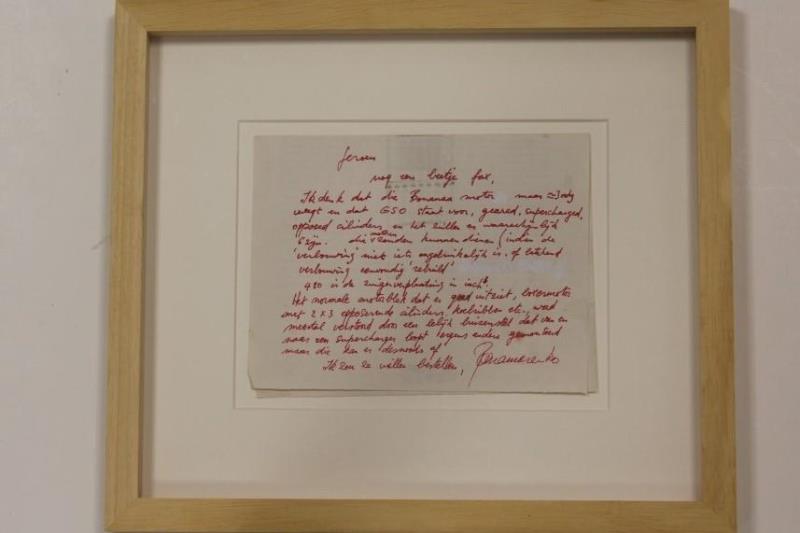 Jeroen
nog een beetje fax,
Ik denk dat die Bonanza motor maar ≈3
weegt en dat GSO staat voor, geared, supercharged,
opposed cilinders, en het zullen er waarschijnlijk
6 zijn. die zouden kunnen dienen (indien de
'verbouwing' niet iets ongelukkelijk is, of
verbouwing eenvoudig 'rebuild'
480 is de zuigerverplaatsing in inch³.
Het normale motorblok dat er goed uitziet, boxermotor
met 2 x 3 opposerende cilinders, koelribben etc., word
meestal verstoord door een lelijk buizenstel dat van en
naar een supercharger loopt ergens anders gemonteerd
maar die kan er desnoods af
Ik zou ze willen bestellen, Panamarenko